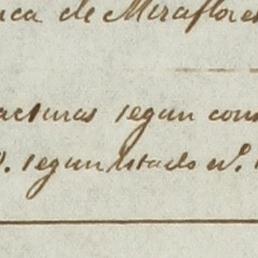 nca de Miraflores
acturas segun cons
segun estado nº.